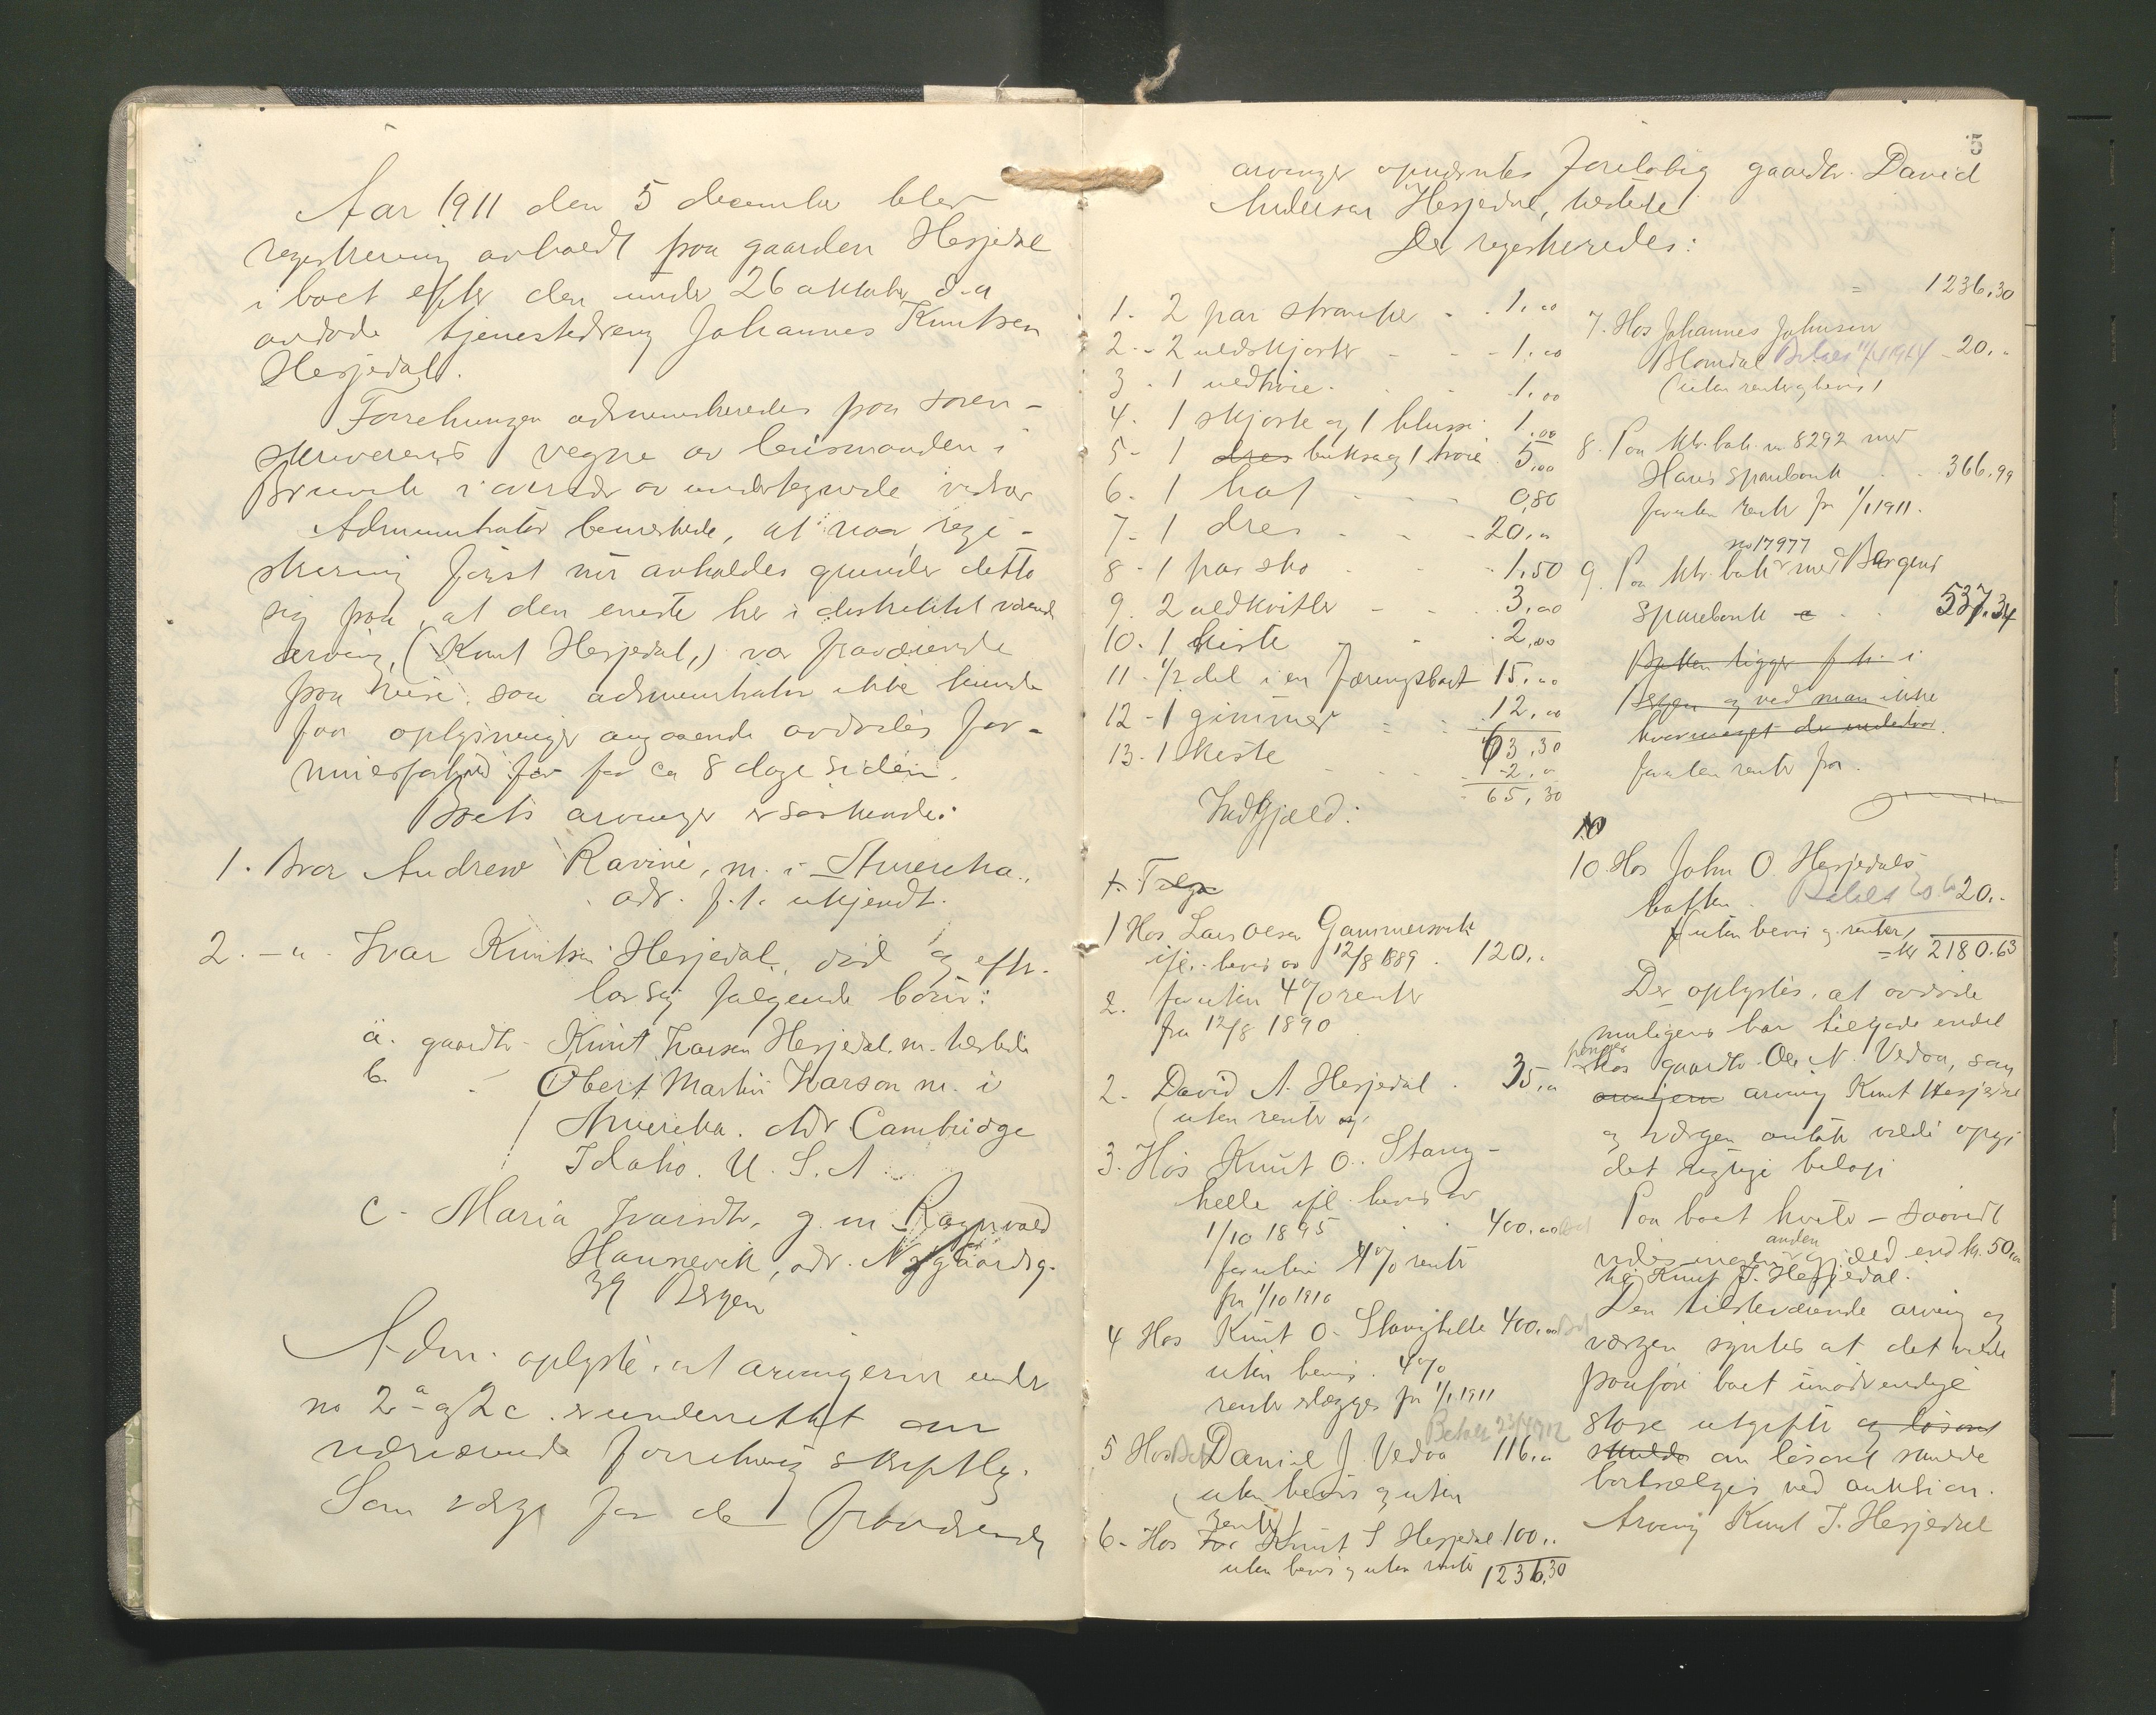 Aar 1911 den 5 december blev
registrering avholdt paa gaarden Hesjedal
i boet efter den under 26 oktober d.a
avdøde tjenestedreng Johannes Knutsen
Hesjedal.
Forretningen administreredes paa soren-
skriverens vegne av lensmanden i
Bruvik i overvær av undertegnede vidner
Administrator bemerkede, at naar regi-
strering først nu avholdes grunder dette
sig paa, at den eneste her i distriktet værende
arving, (Knut Hesjedal,) var fraværende
paa reise. saa administrator ikke kunde
faa oplysninger angaaende avdødes for-
muesforhold før for ca 8 dage siden.
Boets arvinger er søskende:
1. Bror Andrew Ravine, m. i Amerika.,
adr. f.t. ukjendt.
2. - " - Ivar Knutsen Hesjedal, død og efter-
lot sig følgende børn:
a. gaardbr. Knut Ivarsen Hesjedal. m. herstede
b. - Obert Martin Ivarson m. i
Amerika. Adr Cambridge
Idaho. U. S. A
c - Maria Ivarsdtr. g. m Ragnvald
Hannevik, adr. Nygaardsg.
39 Bergen
Adm. oplyste, at arvingerne under
no 2 a og 2 c. er underrettet om
nærværende forretning skriftlig.
Som værge for de fraværende
5
arvinger opnævntes foreløbig gaardbr. David
Andersen Hesjedal, herstede
Der registreredes:
1. 2 par strømper - . 1.00
2. - 2 uldskjorter - - 1.00
3 . 1 uldtrøie . . . 1.00
4. 1 skjorte og 1 bluse . 1.00
5 - 1 dres bukse og 1 trøie 5.00
6 - 1 hat - - - 0,80
7 - 1 dres . - - 20.00
8 - 1 par sko . - . 1.50
9. 2 uldkvitler - - . 3.00
10. 1 kiste - - . 2.00
11 - 1/2 del i en færingsbaat 15.00
12 - 1 gimmer - - 12.00
63,30
13. 1 kiste - - - 2.00
65,30
Indgjæld:
1. Tilgo
1 Hos Lars Olsen Gammersvik
ifl. bevis av 12/8 1889 . 120..
2. foruten 4% renter
fra 12/8 1890
2. David A. Hesjedal . 35.00
(uten rente og
3. Hos Knut O. Stang-
helle ifl. bevis av
1/10 1895 . . 400.00
foruten 4% rente
fra 1/10 1910
4 Hos Knut O. Stanghelle 400.00
uten bevis. 4%
rente erlægges fra 1/1 1911
Betalt 23/4 1912
5 Hos Daniel J. Vedaa 116.00
(uten bevis og uten
rente)
6 - Hos Knut I Hesjedal 100..
uten bevis og uten rente 1236,30
= 1236,30
7. Hos Johannes Johnsen
Blomdal Betalt 11/4 1914 - 20..
(uten rente og bevis)
8. Paa ktr. bok no 8292 med
Haus Sparebank . . 366,99
foruten rente fra 1/1 1911.
no 17977
9. Paa ktr. bok med Bergens
Sparebank . . 537.34
Boken ligger f. t. i
Bergen og ved man ikke
hvormeget der indestaar.
foruten rente fra .
10
10 Hos John O. Hesjedals
Betalt 20..
(uten bevis og renter)
= kr 2180.63
Der oplystes, at avdøde
muligens har tilgode endel
penger
hos gaardbr. Ole N. Vedaa, som
arving Knut Hesjedal
og værgen antok vilde opgi
det rigtige beløp
Paa boet hviler - saavidt
anden
vides ingen gjæld end kr. 50,00
til Knut I. Hesjedal.
Den tilstedeværende arving og
værgen syntes at det vilde
paaføre boet unødvendige
store utgifter og løsøret
skulde om løsøret skulde
bortsælges ved auktion.
Arving Knut I. Hesjedal